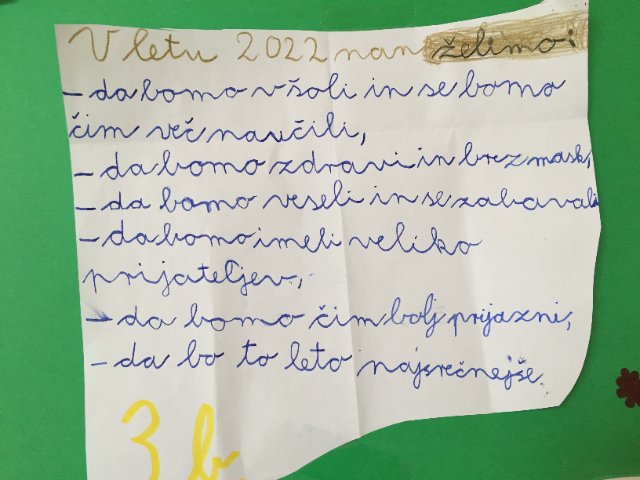 V letu 2022 nam želimo:
- da bomo v šoli in se bomo
čim več naučili,
- da bomo zdravi in brez mask,
- da bomo veseli in se zabavali
- da bomo imeli veliko
prijateljev,
- da bomo čim bolj prijazni,
- da bo to leto najsrečnejše.
3. b